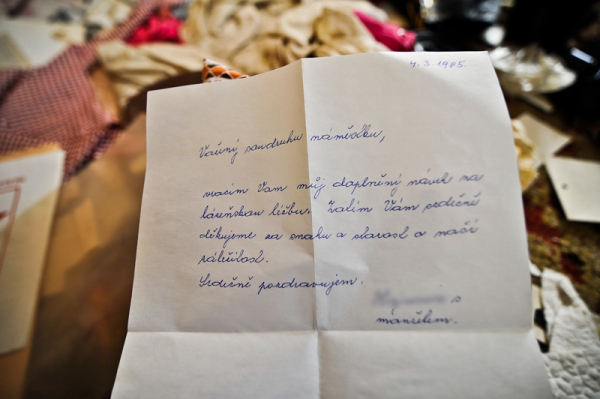 4.3.1985.
Vážený soudruhu náměstku,
vracím Vám můj doplněný návrh na
lázeňskou léčbu. Zatím Vám srdečně
děkujeme za snahu a starost o naší
záležitost.
Srdečně pozdravujem.
s
manželem.